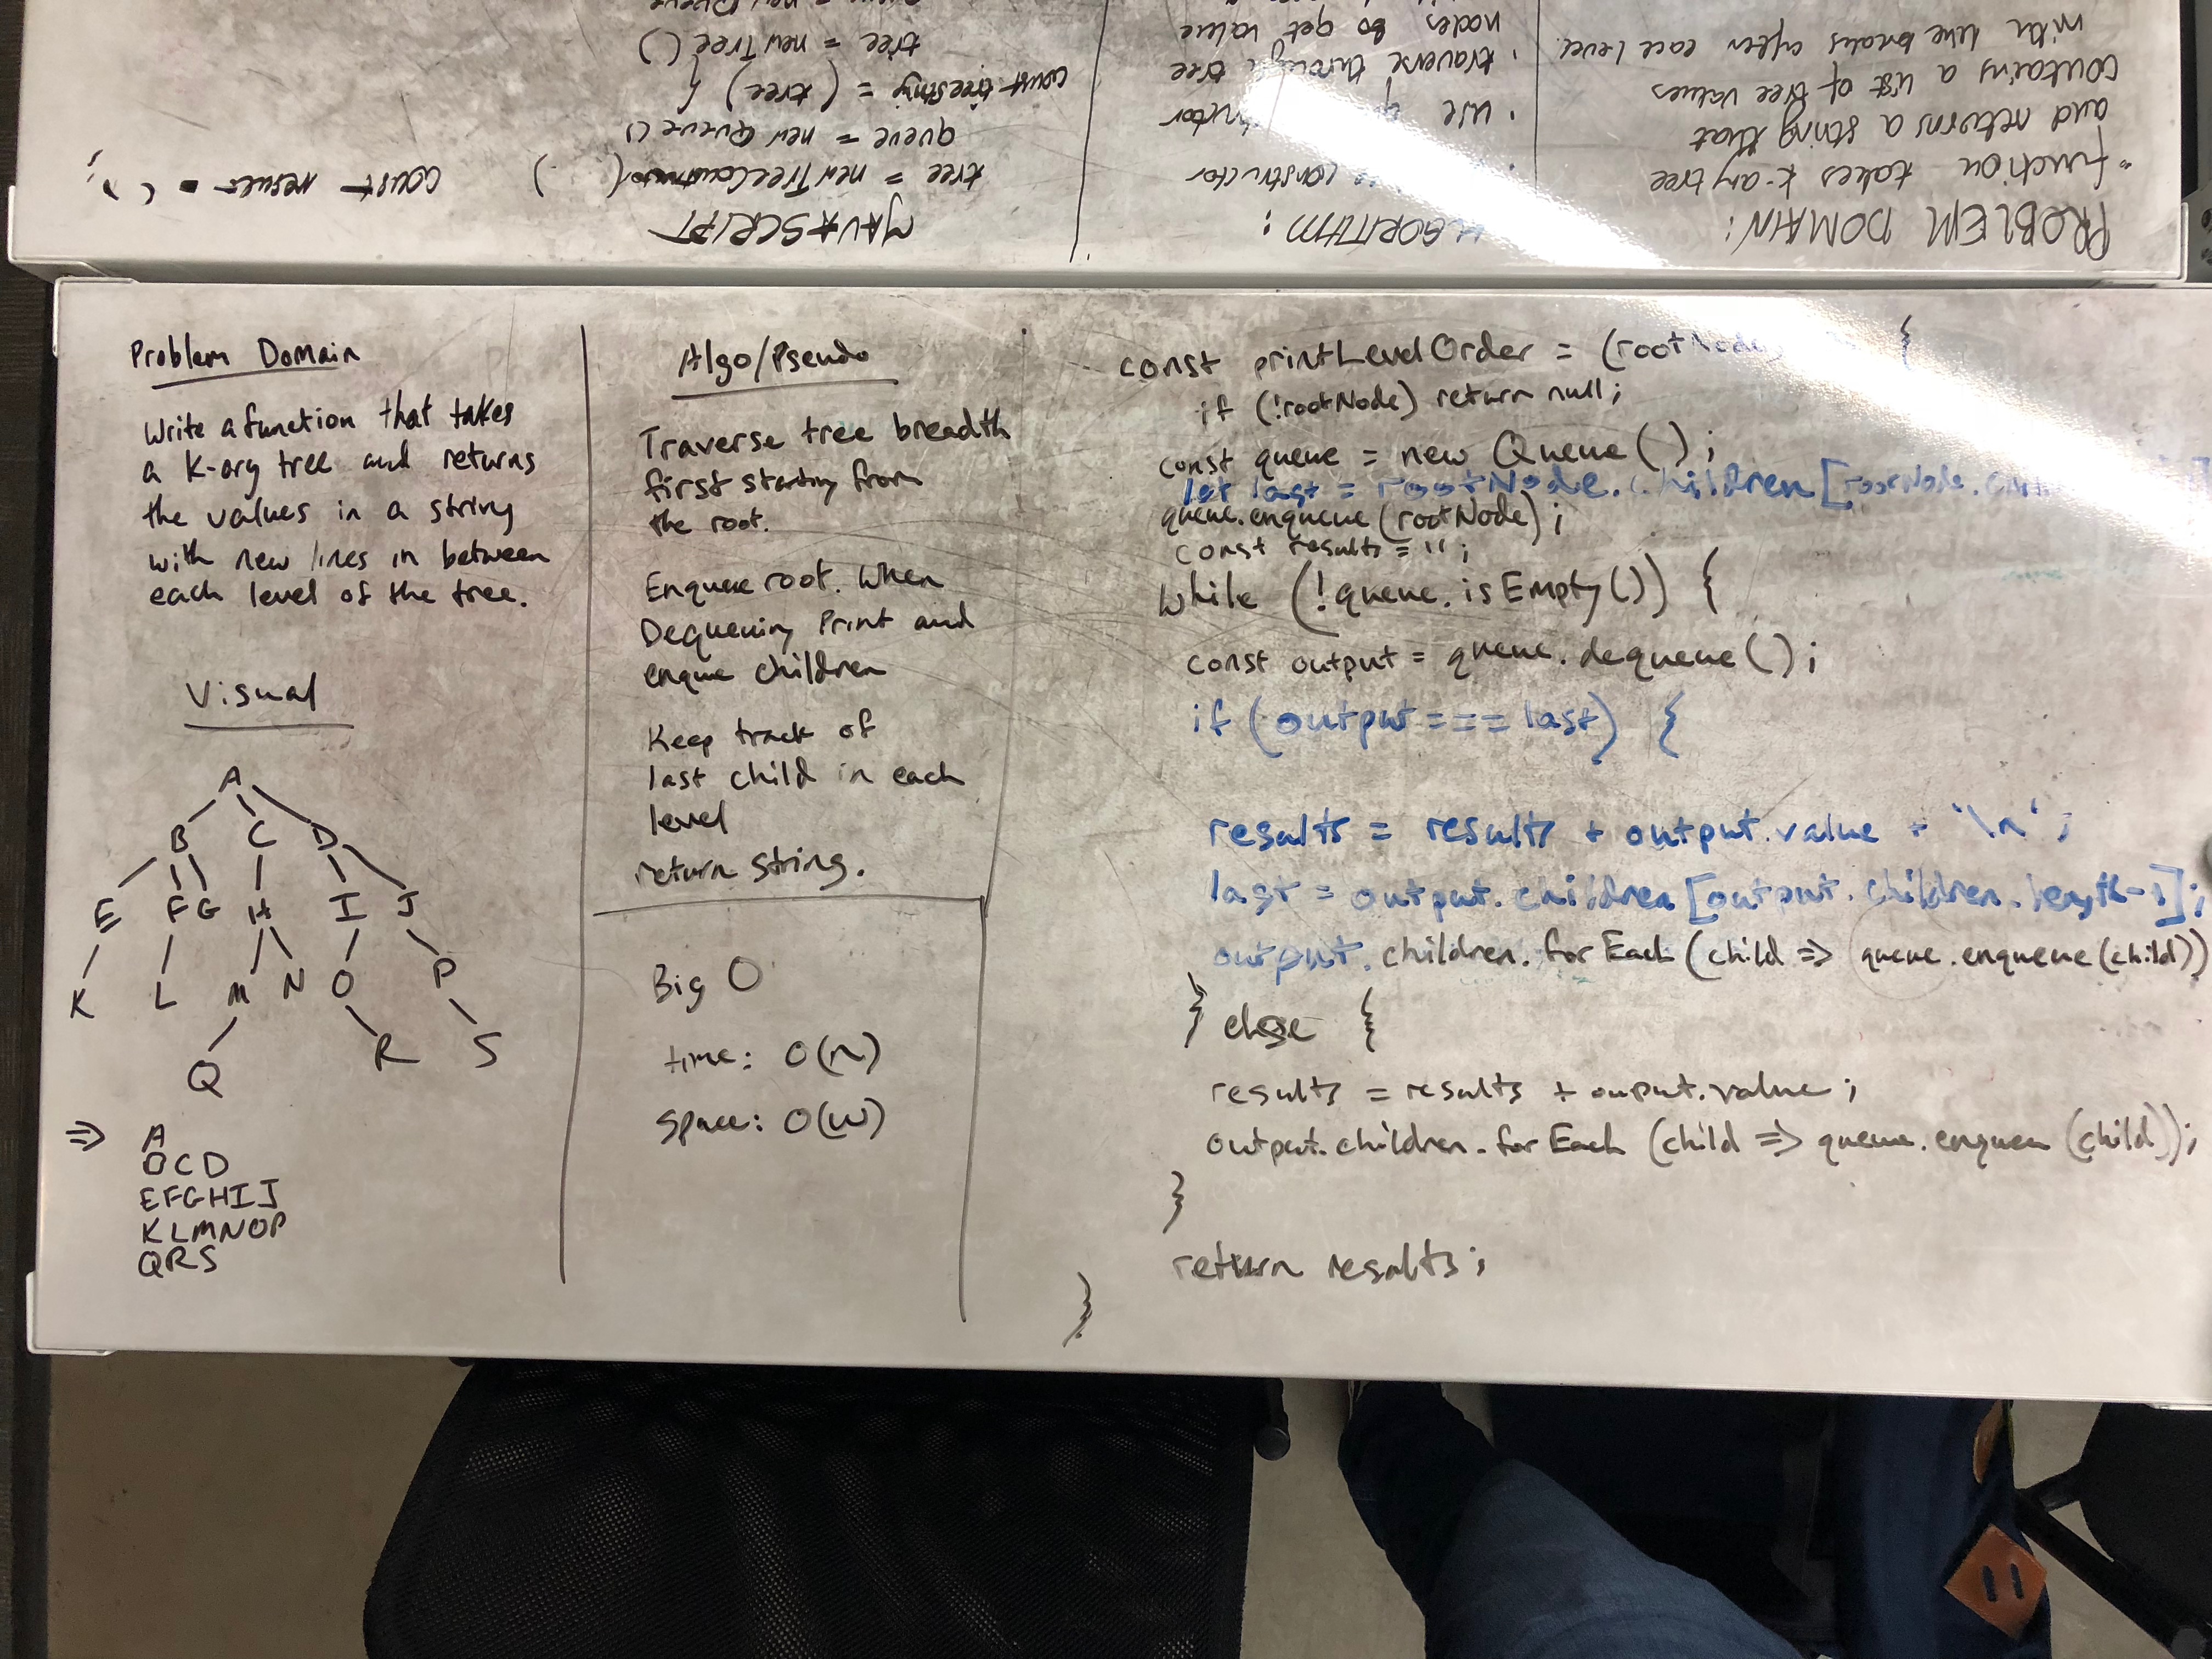 PROBLEM DOMAIN:
"function takes k-ary tree
and returns a string that
contains a list of tree values
with line breaks after each level.
ALGORITHM:
constructor
• use
• traverse through tree
nodes to get value
JAVASCRIPT
tree = new
queue = new Queue()
(tree) {
tree = new Tree()
= new Queue
const results = ( );
Problem Domain
Write a function that takes
a K-ary tree and returns
the values in a string
with new lines in between
each level of the tree.
Visual
A
B C D
E F G H I J
K L M N O P
Q R S
⇒ A
BCD
EFGHIJ
KLMNOP
QRS
Algo/Pseudo
Traverse tree breadth
first starting from
the root.
Enqueue root. When
Dequeuing Print and
enque children
Keep track of
last child in each
level
return string.
Big O
time: O(n)
space: O(w)
const printLevelOrder = (rootNode {
if (!rootNode) return null;
const queue = new Queue();
let last = rootNode.children[rootNode.
queue.enqueue(rootNode);
const results = '';
while (!queue.isEmpty()) {
const output = queue.dequeue();
if (output === last) {
results = results + output.value + '\n';
last = output.children[output.children.length-1];
output.children.forEach(child => queue.enqueue(child))
} else {
results = results + ouput.value;
output.children.forEach(child => queue.enqueu(child));
}
return results;
}